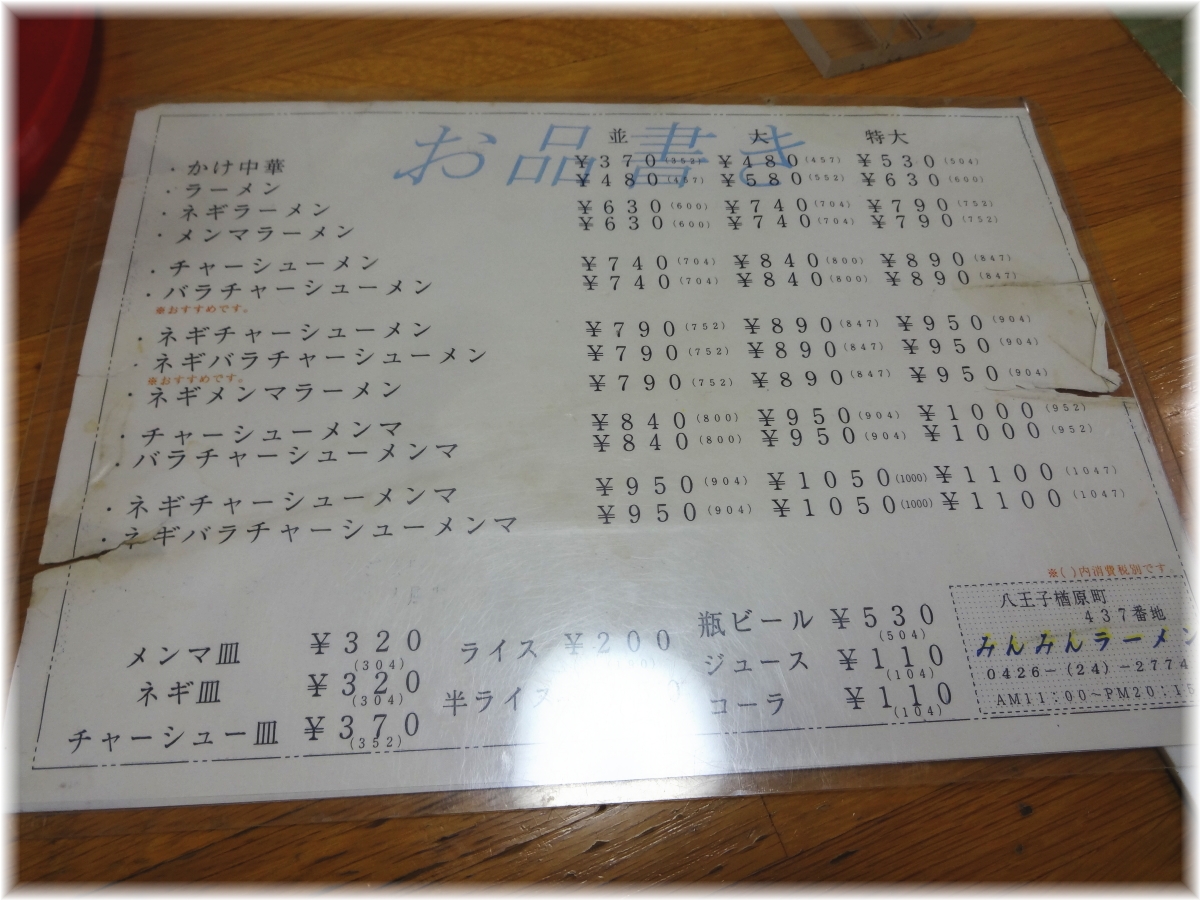 お品書き
並 大 特大
・かけ中華 ¥370(352) ¥480(457) ¥530(504)
・ラーメン ¥480(457) ¥580(552) ¥630(600)
・ネギラーメン ¥630(600) ¥740(704) ¥790(752)
・メンマラーメン ¥630(600) ¥740(704) ¥790(752)
・チャーシューメン ¥740(704) ¥840(800) ¥890(847)
・バラチャーシューメン ¥740(704) ¥840(800) ¥890(847)
※おすすめです。
・ネギチャーシューメン ¥790(752) ¥890(847) ¥950(904)
・ネギバラチャーシューメン ¥790(752) ¥890(847) ¥950(904)
※おすすめです。
・ネギメンマラーメン ¥790(752) ¥890(847) ¥950(904)
・チャーシューメンマ ¥840(800) ¥950(904) ¥1000(952)
・バラチャーシューメンマ ¥840(800) ¥950(904) ¥1000(952)
・ネギチャーシューメンマ ¥950(904) ¥1050(1000) ¥1100(1047)
・ネギバラチャーシューメンマ ¥950(904) ¥1050(1000) ¥1100(1047)
メンマ皿 ¥320(304)
ネギ皿 ¥320(304)
チャーシュー皿 ¥370(352)
ライス ¥200
半ライス
瓶ビール ¥530(504)
ジュース ¥110(104)
コーラ ¥110(104)
※( )内消費税別です。
八王子楢原町
437番地
みんみんラーメン
0426-(24)-2774
AM11:00~PM20:15